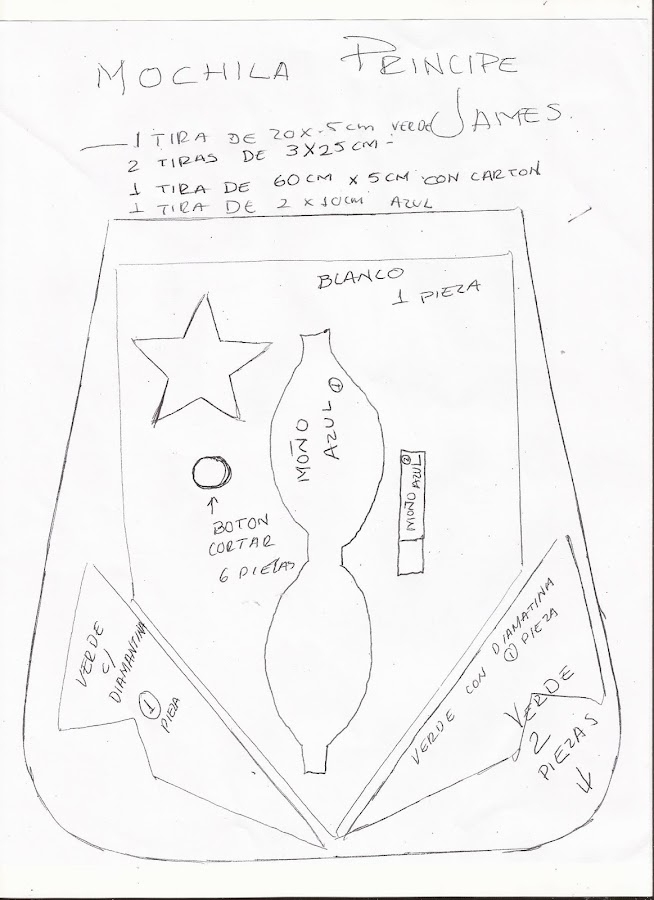 MOCHILA PRINCIPE
JAMES.
1 TIRA DE 20X.5cm VERDE
2 TIRAS DE 3X25CM-
1 TIRA DE 60CM X 5CM CON CARTON
1 TIRA DE 2 X 10CM AZUL
BLANCO
1 PIEZA
MOÑO
AZUL 1
MOÑO AZUL 2
BOTON
CORTAR
6 PIEZAS
VERDE
c/
DIAMANTINA
1
PIEZA
VERDE CON DIAMATINA
1 PIEZA
VERDE
2
PIEZAS